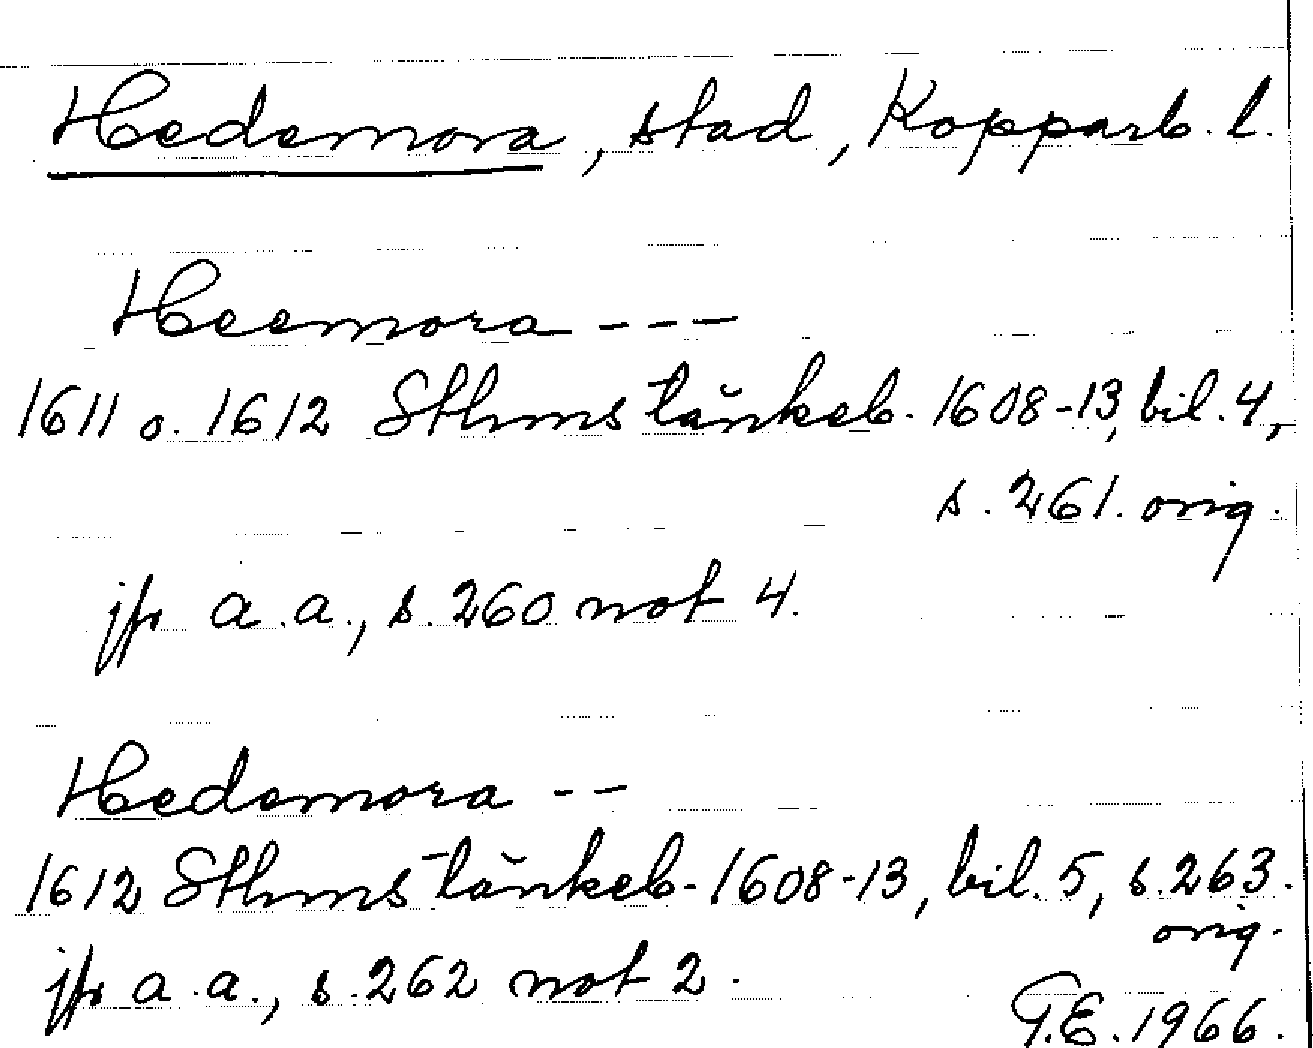 Hedemora, stad, Kopparb. l.
Heemora - - -
1611 o. 1612 Sthms tänkeb. 1608-13, bil. 4,
s. 261. orig.
jfr a.a., s. 260 not 4.
Hedemora - -
1612 Sthms tänkeb. 1608-13, bil. 5, s. 263.
orig.
jfr a.a., s. 262 not 2.
G.E. 1966.